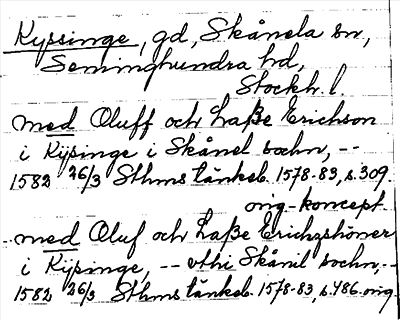 Kyssinge, gd, Skånela sn,
Seminghundra hd,
Stockh. l.
med Oluff och Laße Erichson
i Kijsinge i Skånel sochn, --
1582 26/3 Sthms tänkeb. 1578-83, s. 309.
orig-koncept.
med Oluf och Laße Erichzshöner
i Kijsinge, -- vthi Skånil sochn, --
1582 26/3 Sthms tänkeb. 1578-83, s. 486. orig.